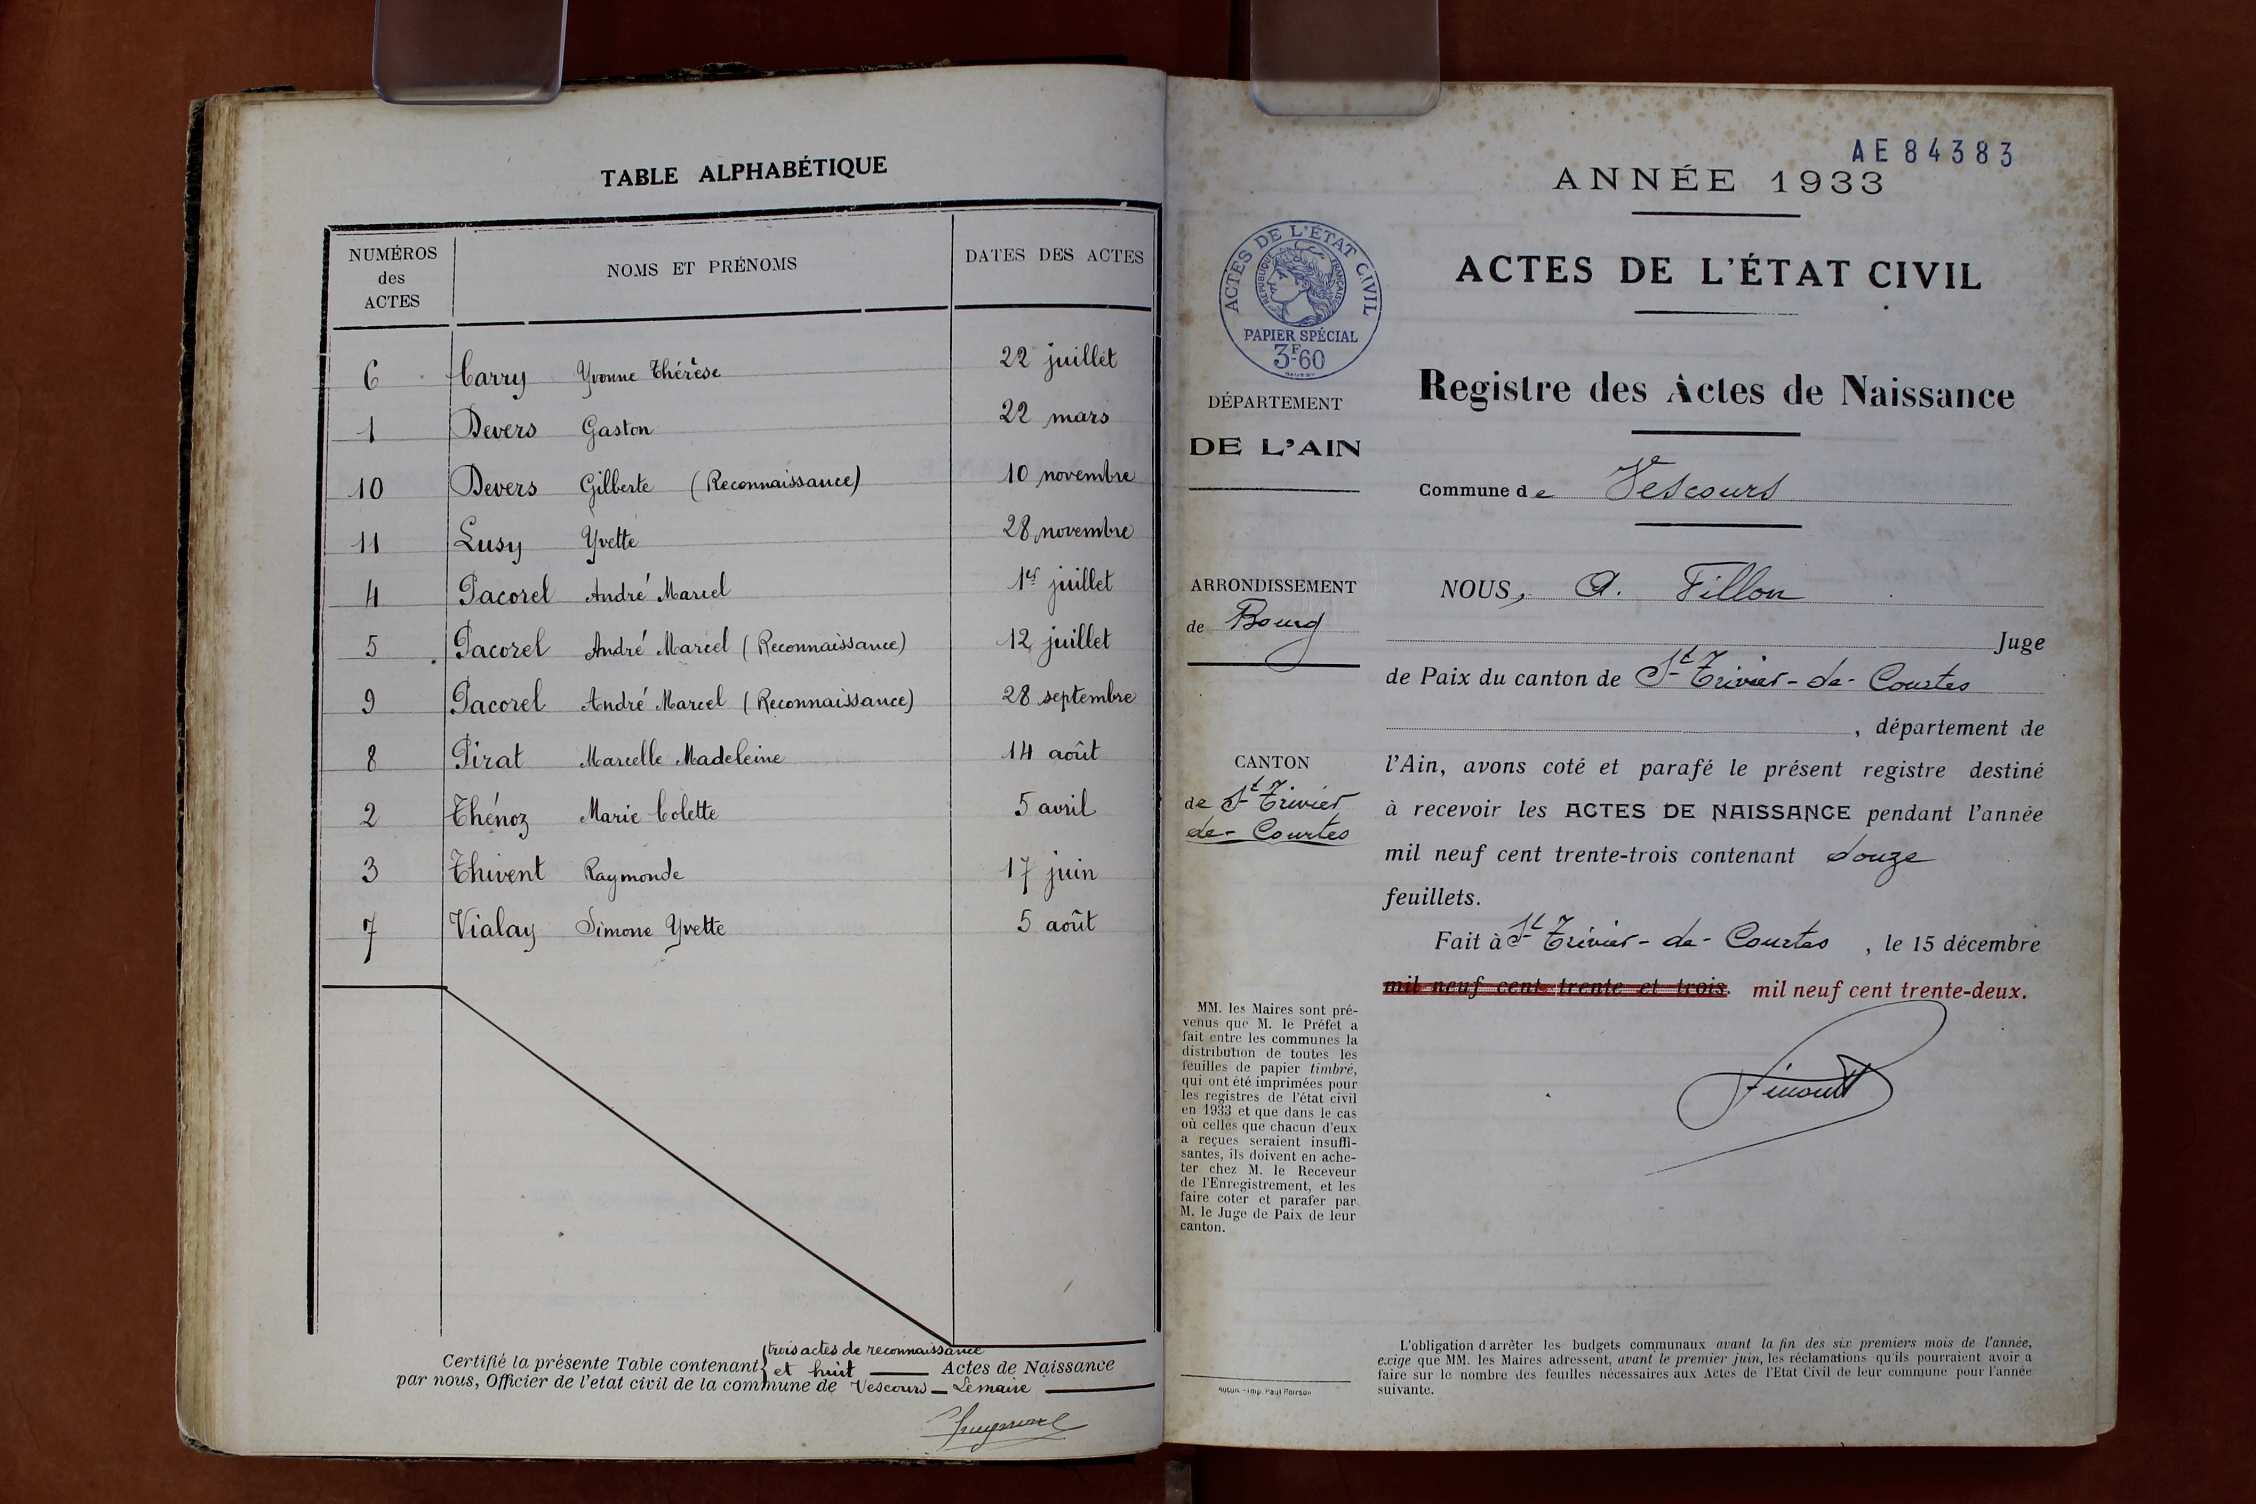 TABLE ALPHABÉTIQUE
NUMÉROS des ACTES NOMS ET PRÉNOMS DATES DES ACTES
6 Carry Yvonne Thérèse 22 juillet
1 Devers Gaston 22 mars
10 Devers Gilberte (Reconnaissance) 10 novembre
11 Lusy Yvette 28 novembre
4 Pacorel André Marcel 1er juillet
5 Pacorel André Marcel (Reconnaissance) 12 juillet
9 Pacorel André Marcel (Reconnaissance) 28 septembre
8 Pirat Marcelle Madeleine 14 août
2 Thénoz Marie Colette 5 avril
3 Thivent Raymonde 17 juin
7 Vialay Simone Yvette 5 août
trois actes de reconnaissance
Certifié la présente Table contenant et huit Actes de Naissance
par nous, Officier de l'etat civil de la commune de Vescours – Le maire
AE 84383
ANNÉE 1933
ACTES DE L'ÉTAT CIVIL
RÉPUBLIQUE FRANÇAISE
PAPIER SPÉCIAL
3F60
ACTES DE L'ÉTAT CIVIL
Registre des Actes de Naissance
DÉPARTEMENT
DE L'AIN
Commune de Vescours
ARRONDISSEMENT
de Bourg
NOUS, A. Fillon
Juge
de Paix du canton de St Trivier-de-Courtes
, département de
CANTON
de St Trivier
de-Courtes
l'Ain, avons coté et parafé le présent registre destiné
à recevoir les ACTES DE NAISSANCE pendant l'année
mil neuf cent trente-trois contenant douze
feuillets.
Fait à St Trivier-de-Courtes, le 15 décembre
mil neuf cent trente et trois. mil neuf cent trente-deux.
MM. les Maires sont pré-
venus que M. le Préfet a
fait entre les communes la
distribution de toutes les
feuilles de papier timbré,
qui ont été imprimées pour
les registres de l'état civil
en 1933 et que dans le cas
où celles que chacun d'eux
a reçues seraient insuffi-
santes, ils doivent en ache-
ter chez M. le Receveur
de l'Enregistrement, et les
faire coter et parafer par
M. le Juge de Paix de leur
canton.
Autun - Imp. Paul Poirson
L'obligation d'arrêter les budgets communaux avant la fin des six premiers mois de l'année,
exige que MM. les Maires adressent, avant le premier juin, les réclamations qu'ils pourraient avoir a
faire sur le nombre des feuilles nécessaires aux Actes de l'Etat Civil de leur commune pour l'année
suivante.